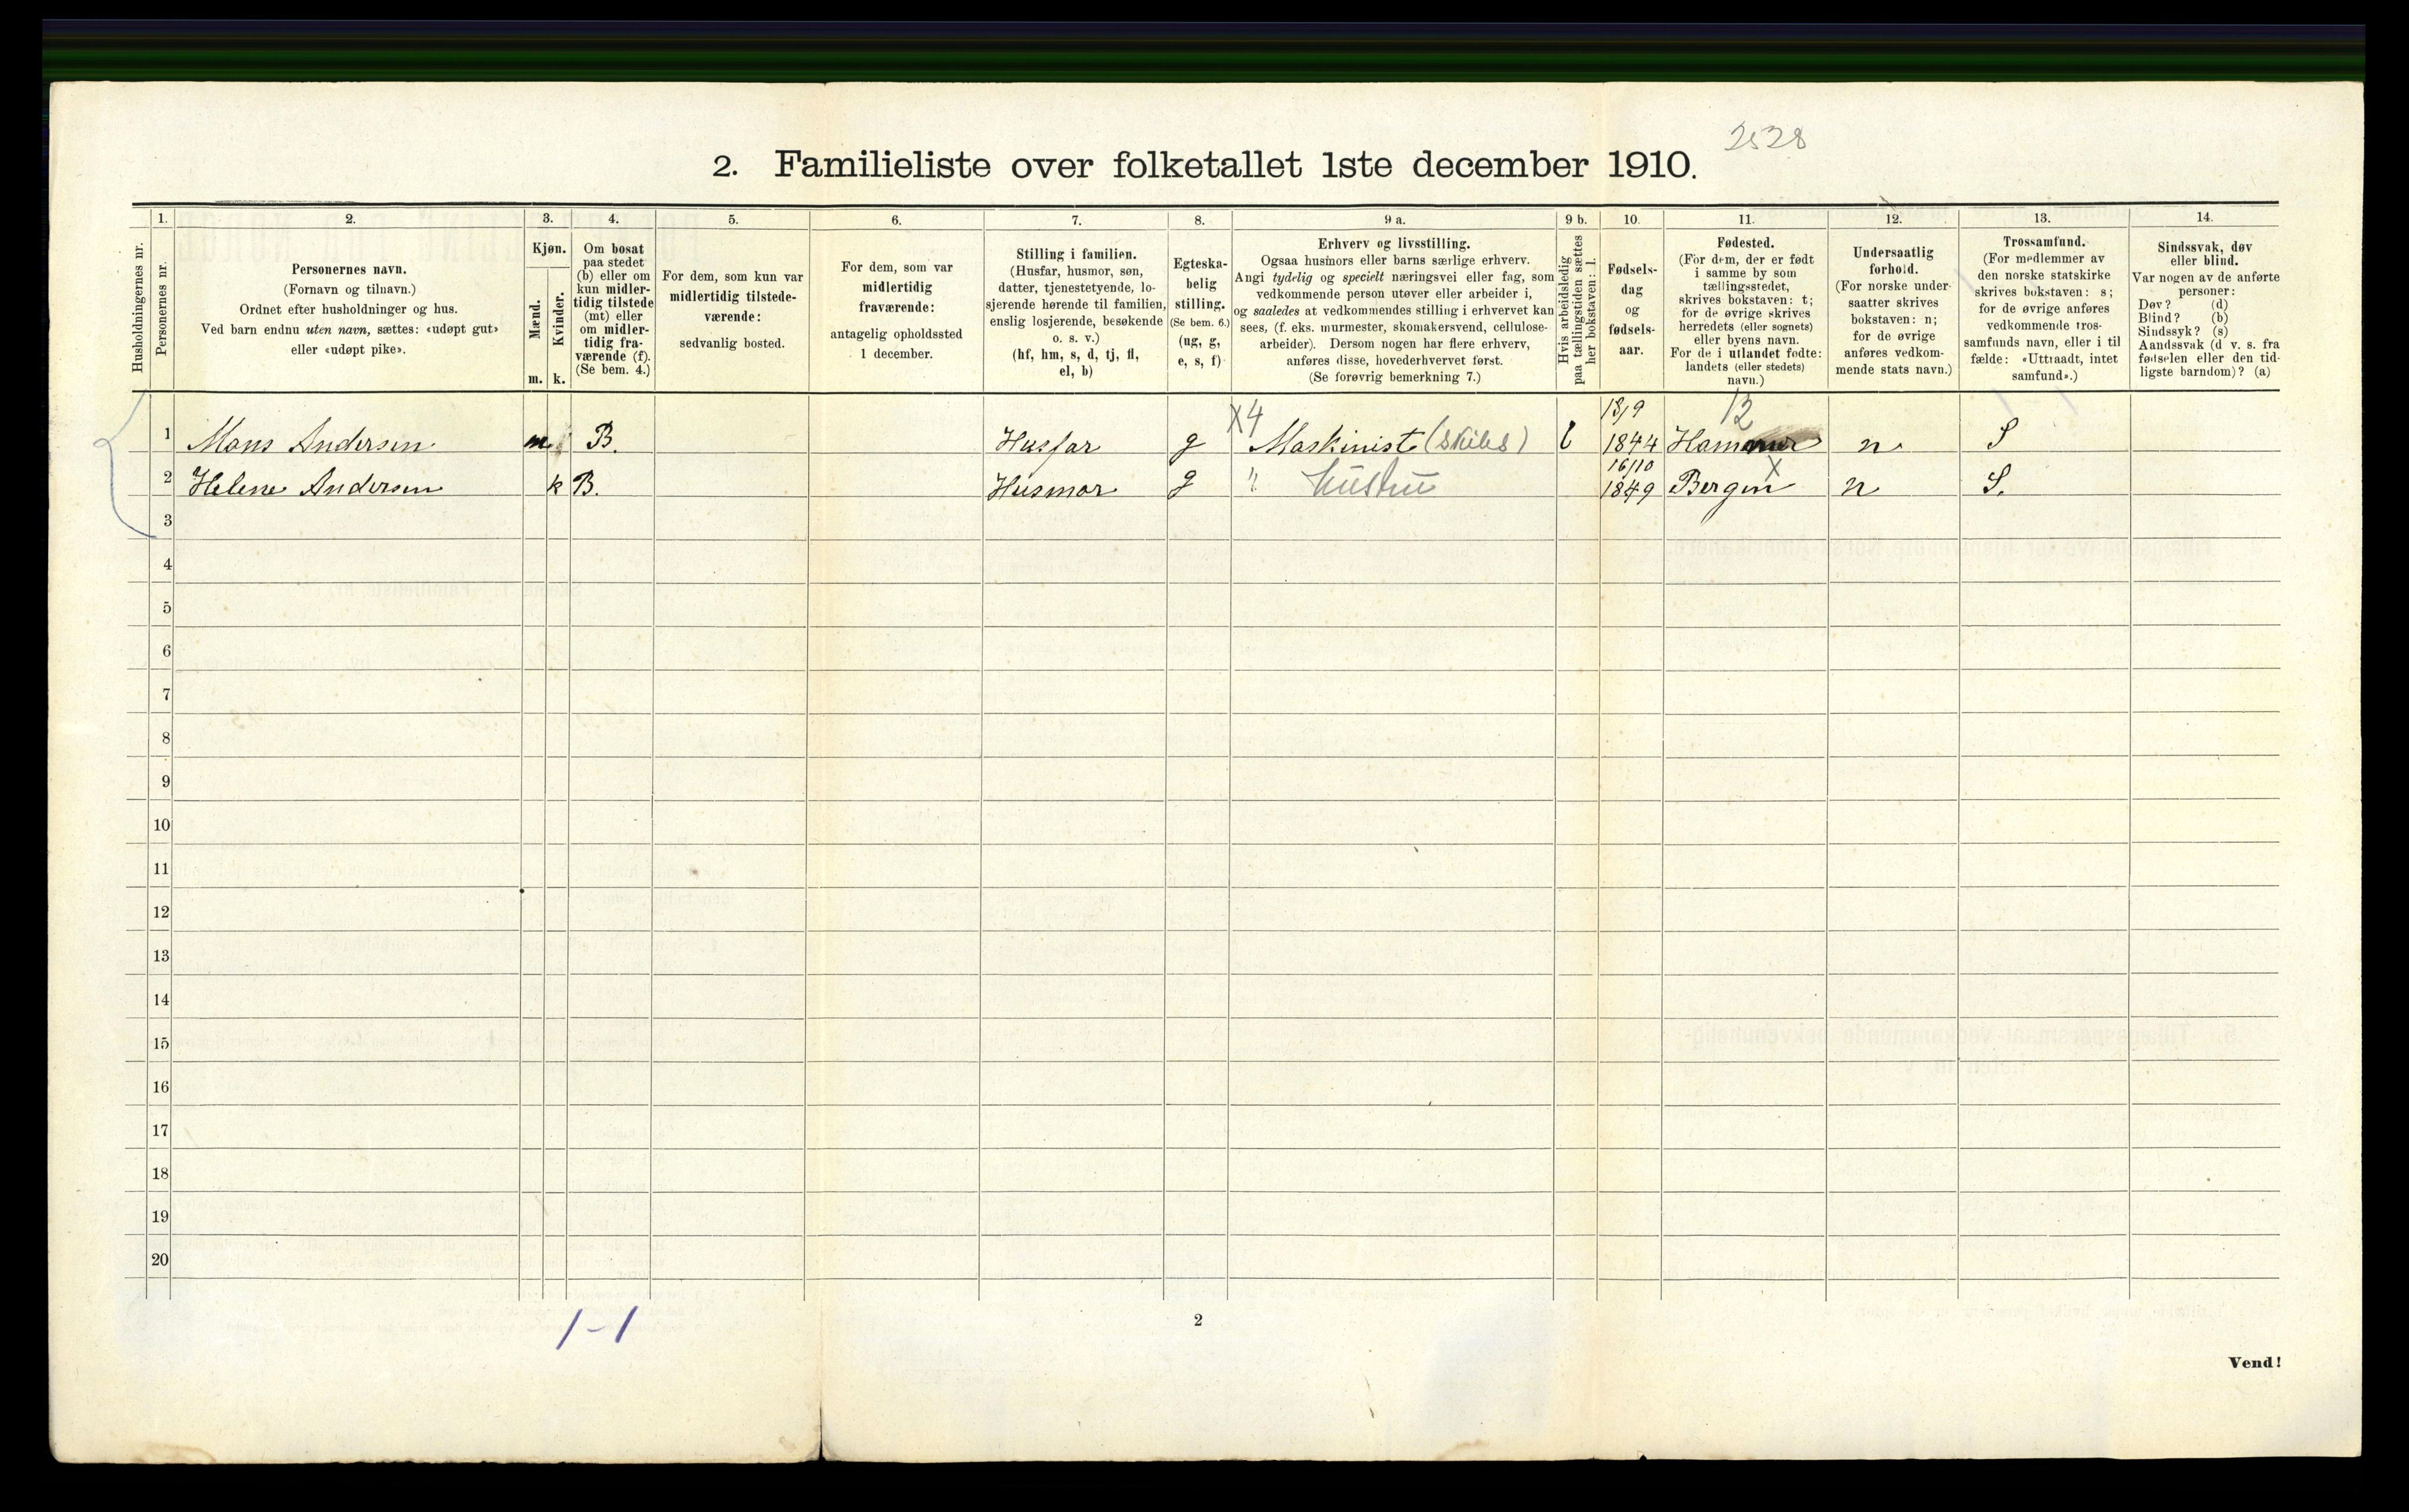 2528
2. Familieliste over folketallet 1ste december 1910.
1. 2. 3. 4. 5. 6. 7. 8. 9 a. 9 b. 10. 11. 12. 13. 14.
Husholdningernes nr.
Personernes nr.
Personernes navn.
(Fornavn og tilnavn.)
Ordnet efter husholdninger og hus.
Ved barn endnu uten navn, sættes: «udøpt gut»
eller «udøpt pike».
Kjøn.
Mænd.
Kvinder.
m. k.
Om bosat
paa stedet
(b) eller om
kun midler-
tidig tilstede
(mt) eller
om midler-
tidig fra-
værende (f).
(Se bem. 4.)
For dem, som kun var
midlertidig tilstede-
værende:
sedvanlig bosted.
For dem, som var
midlertidig
fraværende:
antagelig opholdssted
1 december.
Stilling i familien.
(Husfar, husmor, søn,
datter, tjenestetyende, lo-
sjerende hørende til familien,
enslig losjerende, besøkende
o. s. v.)
(hf, hm, s, d, tj, fl,
el, b)
Egteska-
belig
stilling.
(Se bem. 6.)
(ug, g,
e, s, f)
Erhverv og livsstilling.
Ogsaa husmors eller barns særlige erhverv.
Angi tydelig og specielt næringsvei eller fag, som
vedkommende person utøver eller arbeider i,
og saaledes at vedkommendes stilling i erhvervet kan
sees, (f. eks. murmester, skomakersvend, cellulose-
arbeider). Dersom nogen har flere erhverv,
anføres disse, hovederhvervet først.
(Se forøvrig bemerkning 7.)
Hvis arbeidsledig
paa tællingstiden sættes
her bokstaven: l.
Fødsels-
dag
og
fødsels-
aar.
Fødested.
(For dem, der er født
i samme by som
tællingsstedet,
skrives bokstaven: t;
for de øvrige skrives
herredets (eller sognets)
eller byens navn.
For de i utlandet fødte:
landets (eller stedets)
navn.)
Undersaatlig
forhold.
(For norske under-
saatter skrives
bokstaven: n;
for de øvrige
anføres vedkom-
mende stats navn.)
Trossamfund.
(For medlemmer av
den norske statskirke
skrives bokstaven: s;
for de øvrige anføres
vedkommende tros-
samfunds navn, eller i til
fælde: «Uttraadt, intet
samfund».)
Sindssvak, døv
eller blind.
Var nogen av de anførte
personer:
Døv? (d)
Blind? (b)
Sindssyk? (s)
Aandssvak (d v. s. fra
fødselen eller den tid-
ligste barndom)? (a)
X4 13/9 12
1 Mons Andersen m B. Husfar g Maskinist (skibs) l 1844 Hammer n S
16/10 X
2 Helene Andersen k B. Husmor g " hustru 1849 Bergen n S.
3
4
5
6
7
8
9
10
11
12
13
14
15
16
17
18
19
20
1-1
2
Vend!